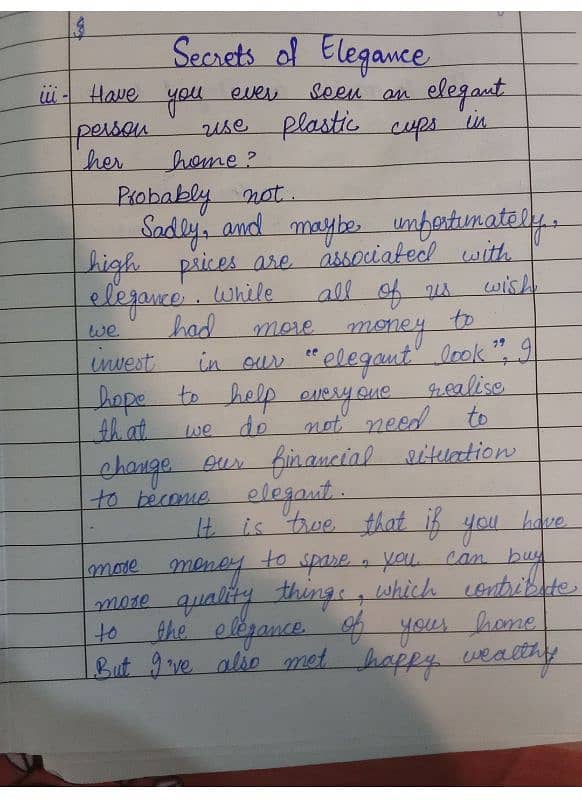 Secrets of Elegance
iii- Have you ever seen an elegant
person use plastic cups in
her home?
Probably not.
Sadly, and maybe, unfortunately,
high prices are associated with
elegance. While all of us wish
we had more money to
invest in our "elegant look", I
hope to help everyone realise
that we do not need to
change our financial situation
to become elegant.
It is true that if you have
more money to spare, you can buy
more quality things, which contribute
to the elegance of your home
But I've also met happy wealthy